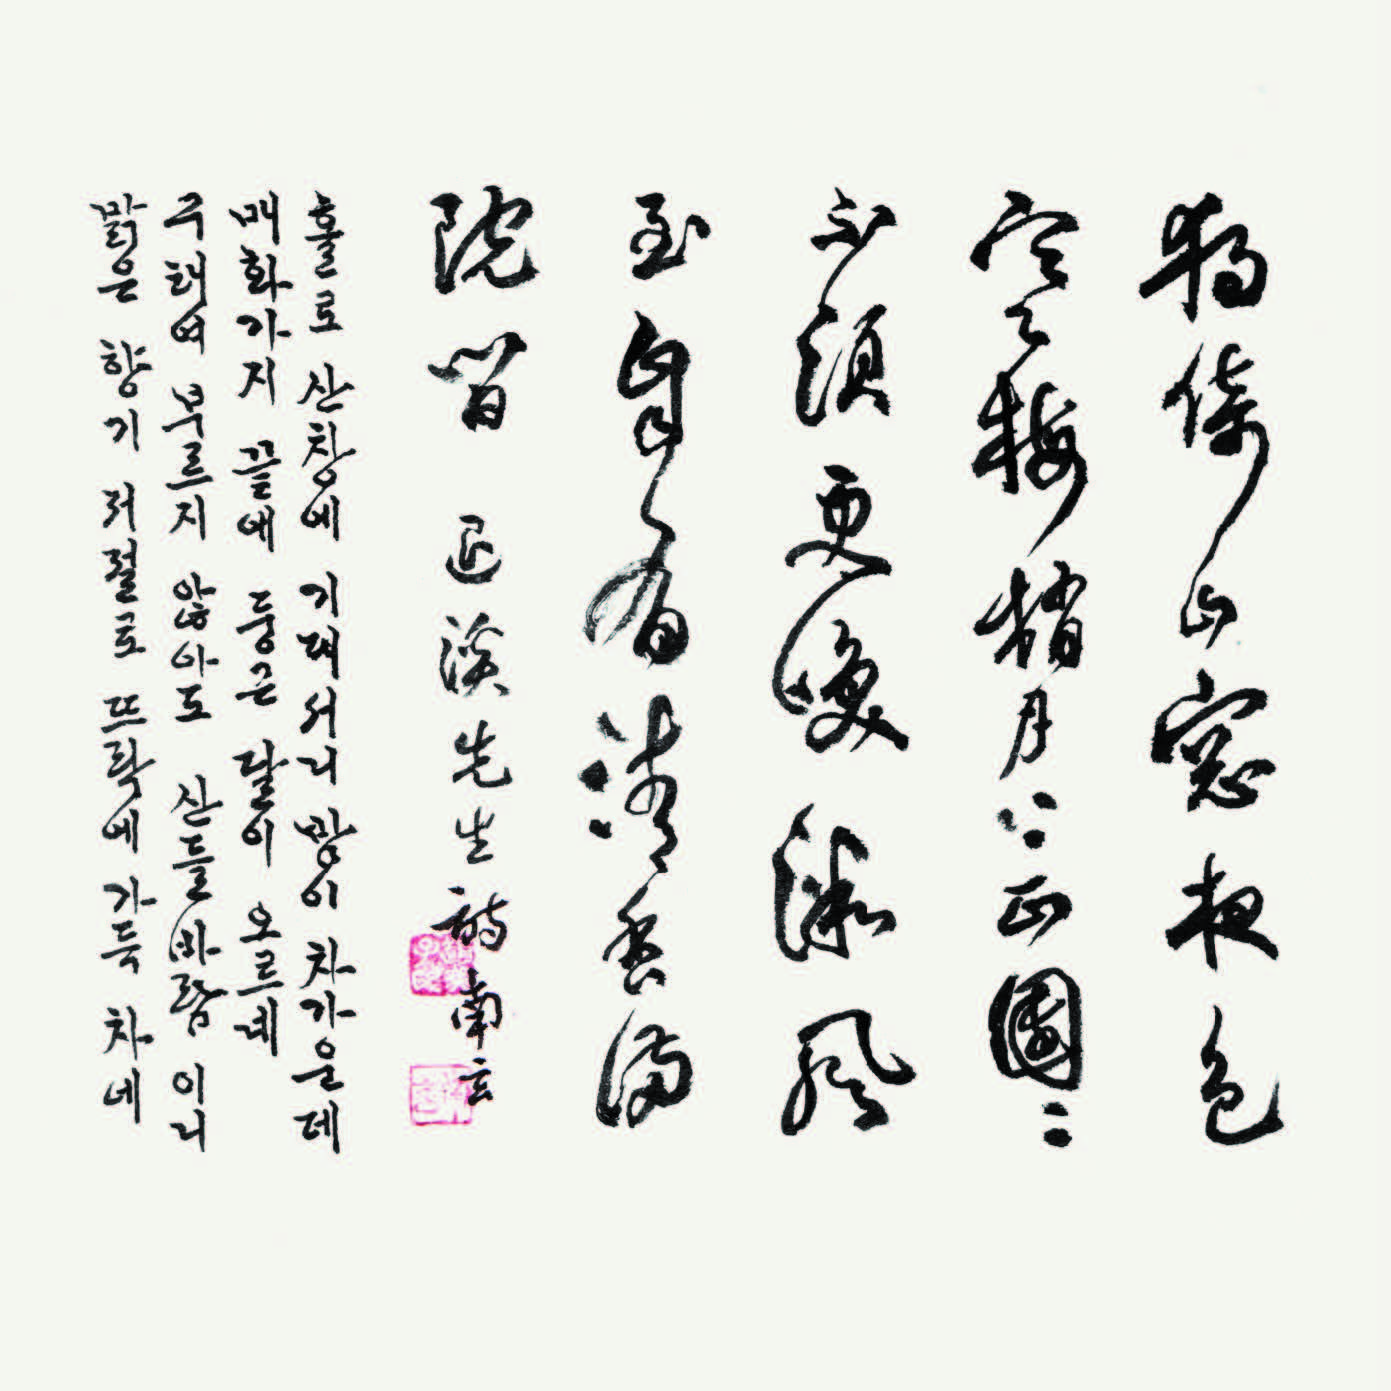 獨倚山窓夜色
寒梅梢月上正團々
不須更喚微風
至自有清香滿
院間 退溪先生詩 南玄
홀로 산창에 기대서니 밤이 차가운데
매화가지 끝에 둥근 달이 오르네
구태여 부르지 않아도 산들바람 이니
맑은 향기 저절로 뜨락에 가득 차네